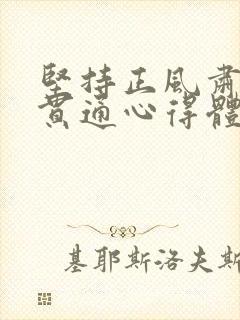 堅持正風肅
貫通心得體
基耶斯洛夫斯